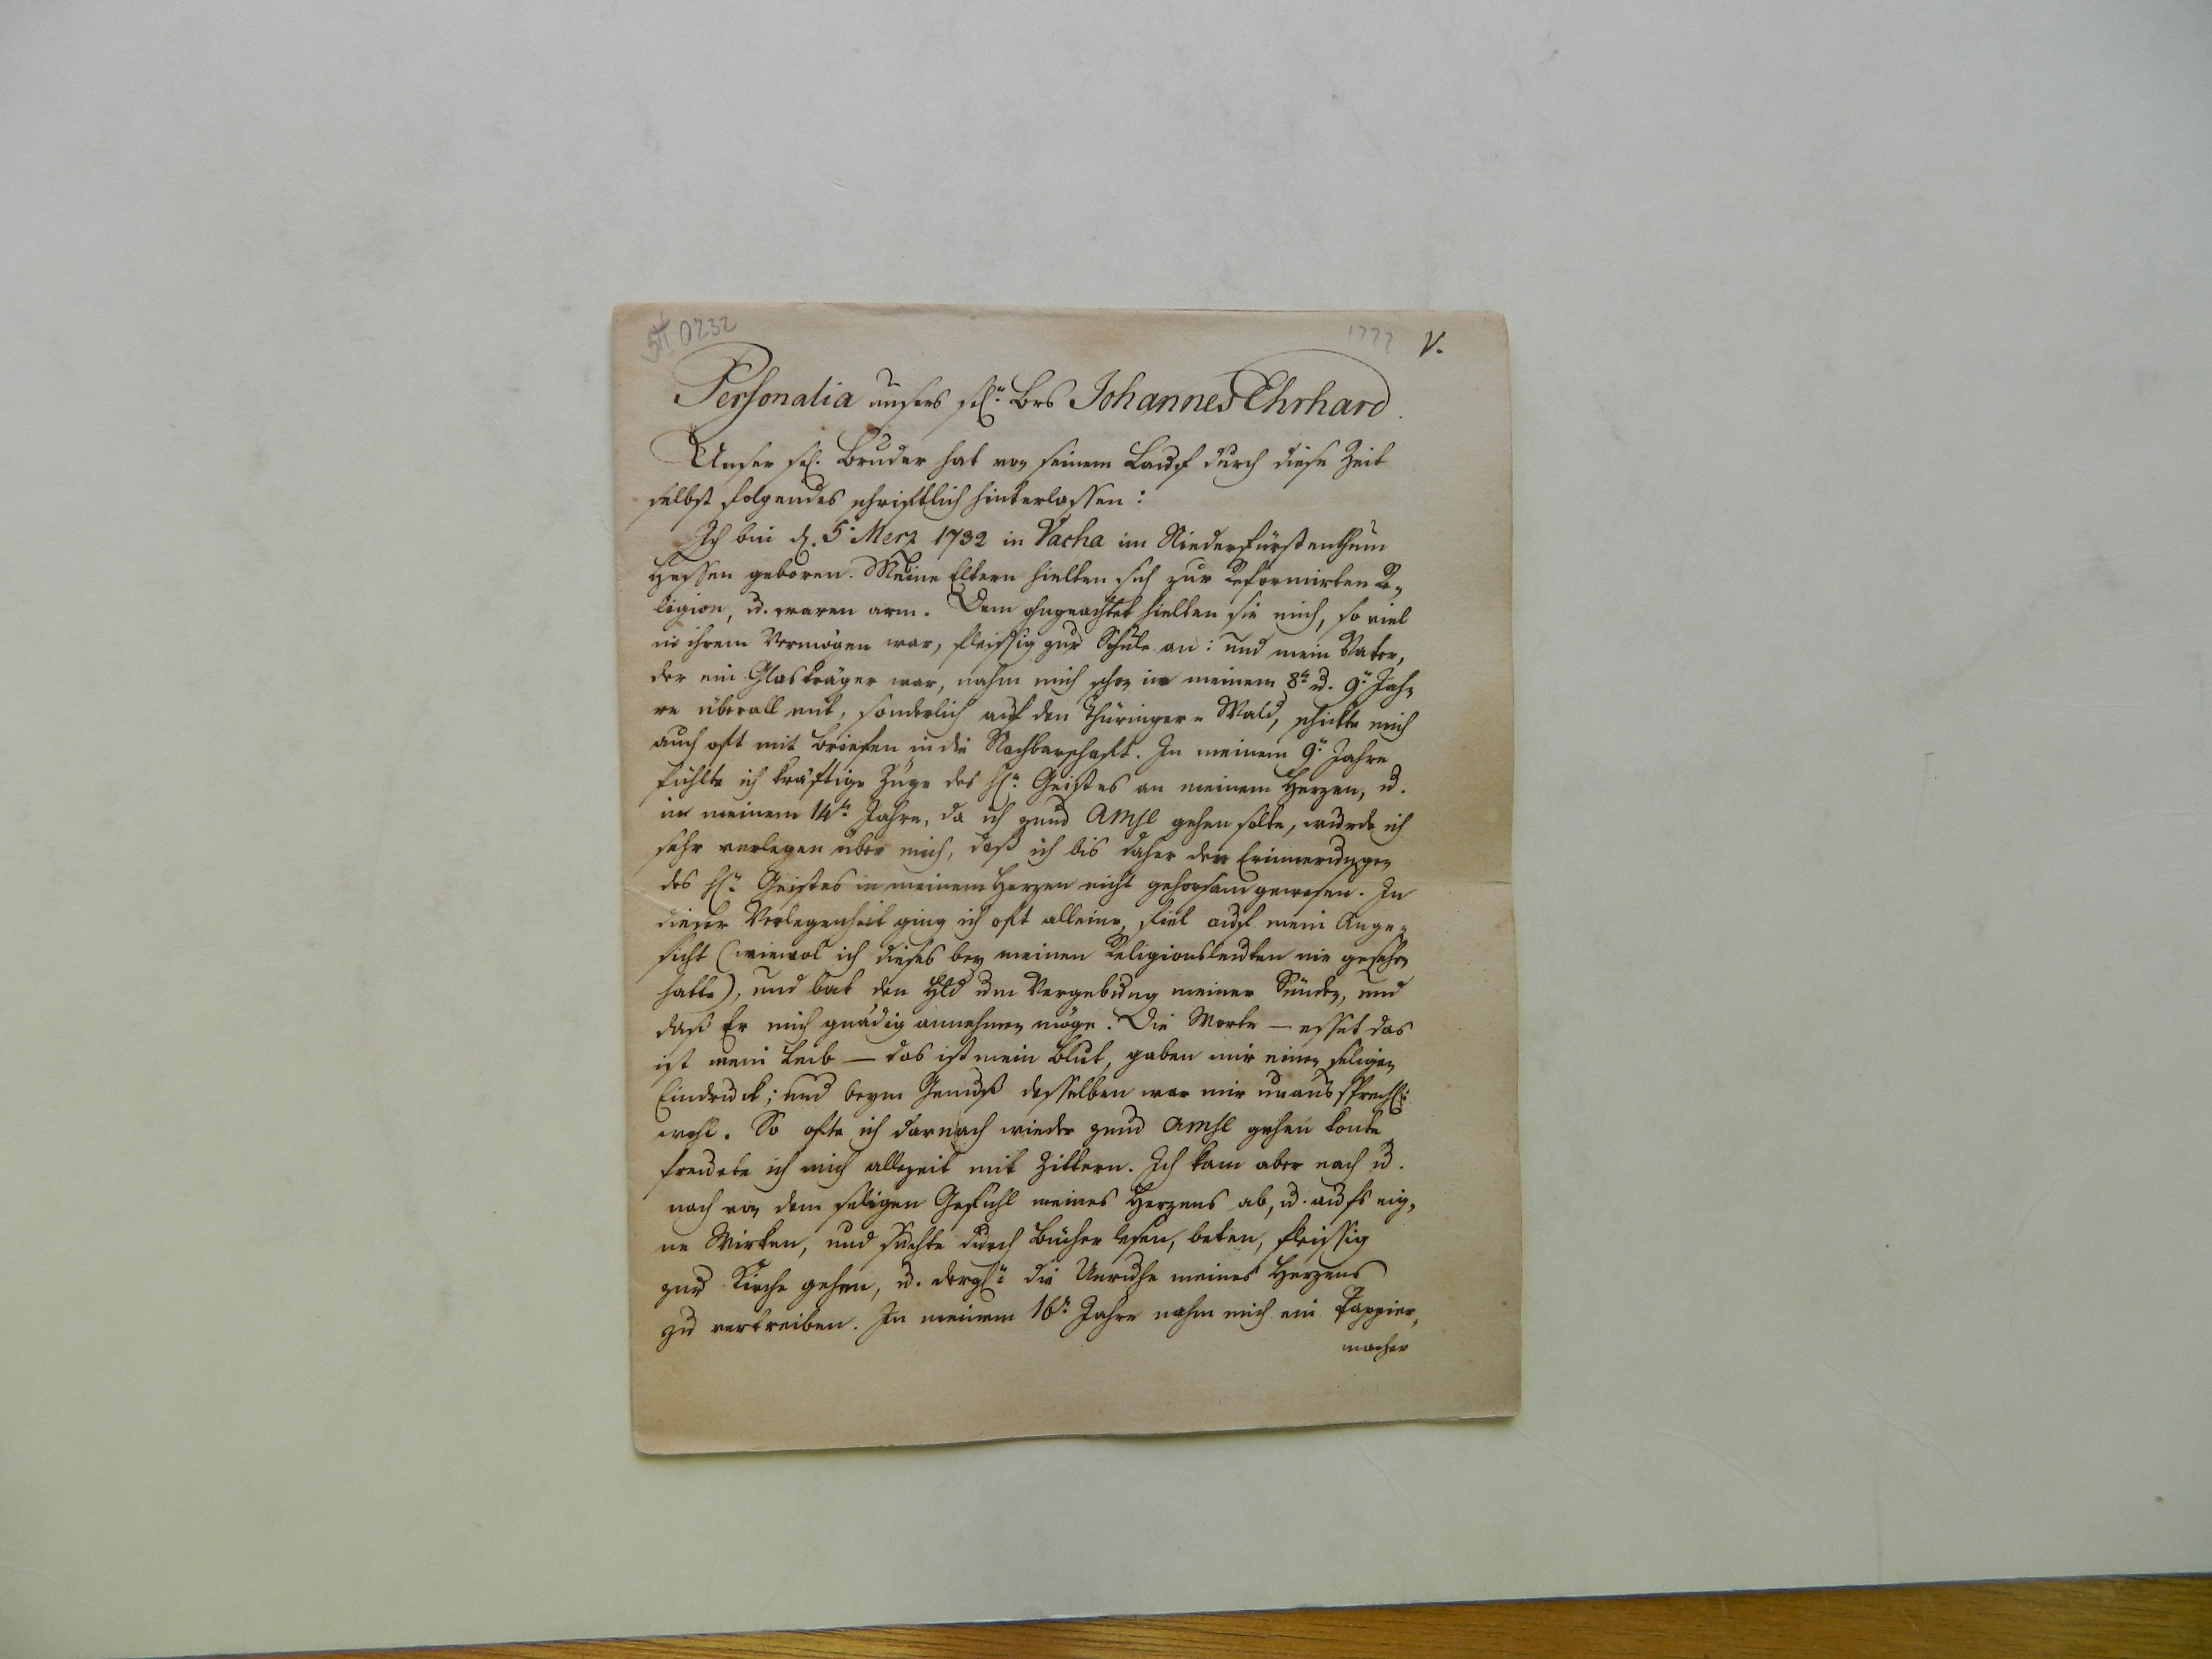 0232
1777
V.
Personalia unsers sel.n Brs Johannes Ehrhard.
Unser sel. Bruder hat von seinem Lauf durch diese Zeit
selbst folgendes schriftlich hinterlassen:
Ich bin d. 5. Merz 1732 in Vacha im Niederfürstenthum
Hessen geboren. Meine Eltern hielten sich zur Reformirten Re-
ligion, u. waren arm. Dem ohngeachtet hielten sie mich, so viel
in ihrem Vermögen war, fleissig zur Schule an: und mein Vater,
der ein Glasträger war, nahm mich schon in meinem 8n u. 9n Jah-
re überall mit, sonderlich auf den Thüringer-Wald, schickte mich
auch oft mit Briefen in die Nachbarschaft. In meinem 9n Jahre
fühlte ich kräftige Züge des hl.n Geistes an meinem Herzen, u.
in meinem 14n Jahre, da ich zum Amhl gehen solte, wurde ich
sehr verlegen über mich, daß ich bis daher den Erinnerungen
des hl.n Geistes in meinem Herzen nicht gehorsam gewesen. In
dieser Verlegenheit ging ich oft alleine, fiel auf mein Ange-
sicht (wiewol ich dieses bey meinen Religionsleuten nie gesehen
hatte), und bat den Hld um Vergebung meiner Sünden, und
daß Er mich gnädig annehmen möge. Die Worte — esset das
ist mein Leib — das ist mein Blut, gaben mir einen seligen
Eindruck; und beym Genuß desselben war mir unaussprechl.
wohl. So ofte ich darnach wieder zum Amhl gehen konte
freuete ich mich allezeit mit Zittern. Ich kam aber nach u.
nach von dem seligen Gefühl meines Herzens ab, u. aufs eig-
ne Wirken, und suchte durch Bücher lesen, beten, fleissig
zur Kirche gehen, u. dergl.n die Unruhe meines Herzens
zu vertreiben. In meinem 16n Jahre nahm mich ein Pappier-
macher